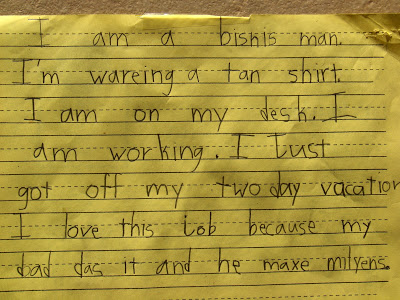 I am a bisnis man.
I'm wareing a tan shirt.
I am on my desk. I
am working. I Lust
got off my two day vacation
I love this iob because my
dad das it and he maxe milyens.